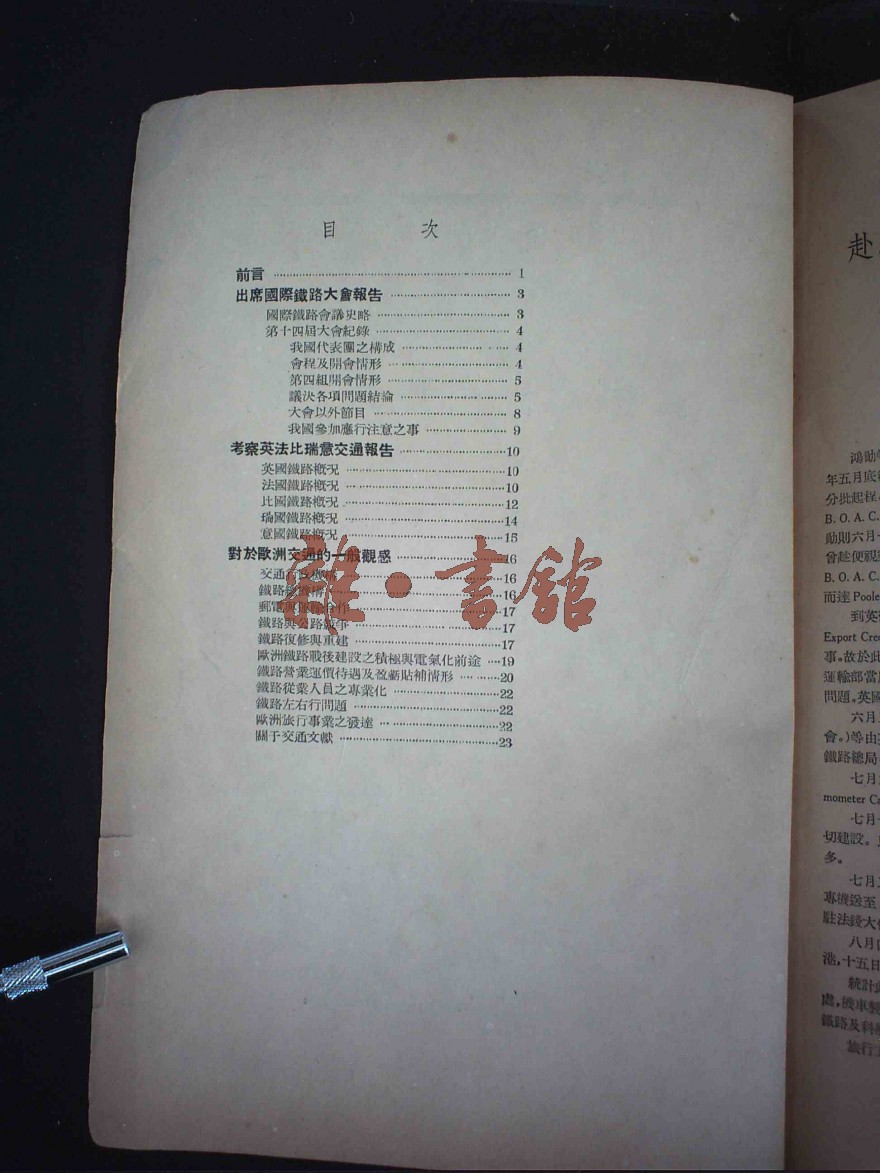 目 次
前言 1
出席國際鐵路大會報告 3
國際鐵路會議史略 3
第十四屆大會紀錄 4
我國代表團之構成 4
會程及開會情形 4
第四組開會情形 5
議決各項問題結論 5
大會以外節目 8
我國參加應行注意之事 9
考察英法比瑞意交通報告 10
英國鐵路概況 10
法國鐵路概況 10
比國鐵路概況 12
瑞國鐵路概況 14
意國鐵路概況 15
對於歐洲交通的一般觀感 16
交通行政 16
鐵路 16
郵電與 17
鐵路與公路競爭 17
鐵路復修與重建 17
歐洲鐵路戰後建設之積極與電氣化前途 19
鐵路營業運價待遇及盈虧貼補情形 20
鐵路從業人員之專業化 22
鐵路左右行問題 22
歐洲旅行事業之發達 22
關于交通文獻 23
雜·書館
赴
鴻勛
年五月底
分批起程
B. O. A. C.
助則六月
曾趁便視
B. O. A. C.
而達 Poole
到英
Export Cre
事。故於此
運輸部當
問題。英國
六月
會。)等由
鐵路總局
七月
mometer Ca
七月
切建設。
多。
七月
專機送至
駐法錢大
八月
港,十五日
統計
處,機車
鐵路及科
旅行